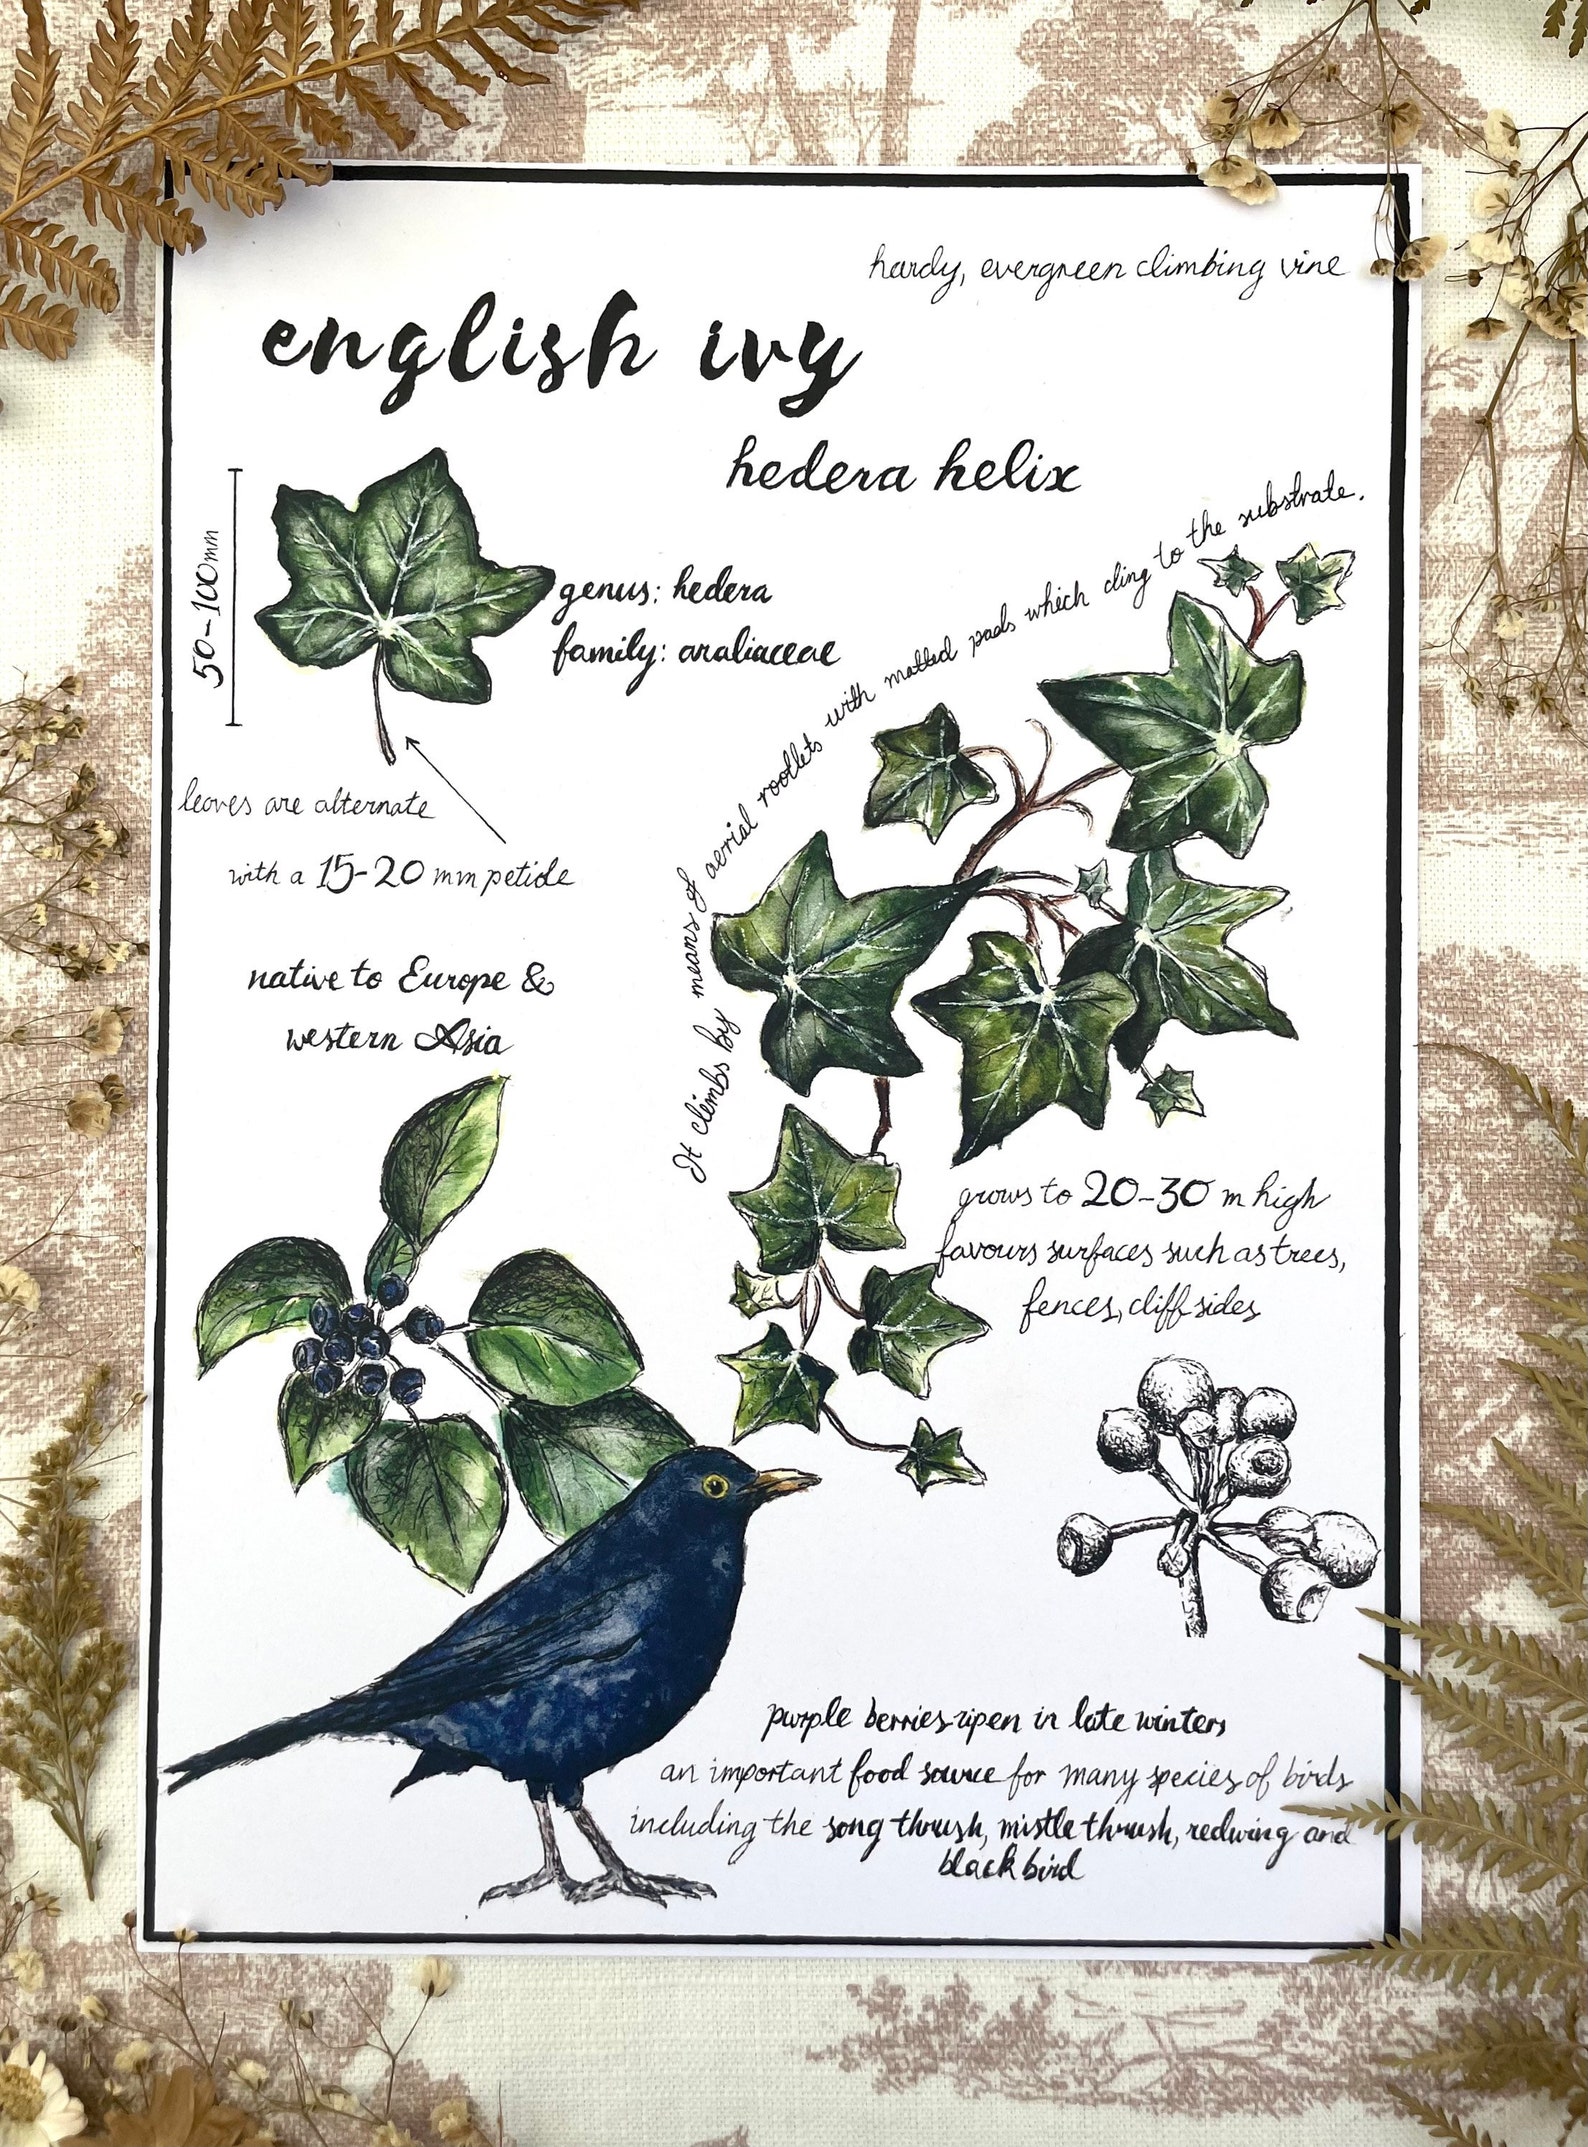 hardy, evergreen climbing vine
english ivy
hedera helix
50-100mm
genus: hedera
family: araliaceae
It climbs by means of aerial rootlets with matted pads which cling to the substrate.
leaves are alternate
with a 15-20 mm petiole
native to Europe &
western Asia
grows to 20-30 m high
favours surfaces such as trees,
fences, cliff sides
purple berries ripen in late winter,
an important food source for many species of birds
including the song thrush, mistle thrush, redwing and
blackbird